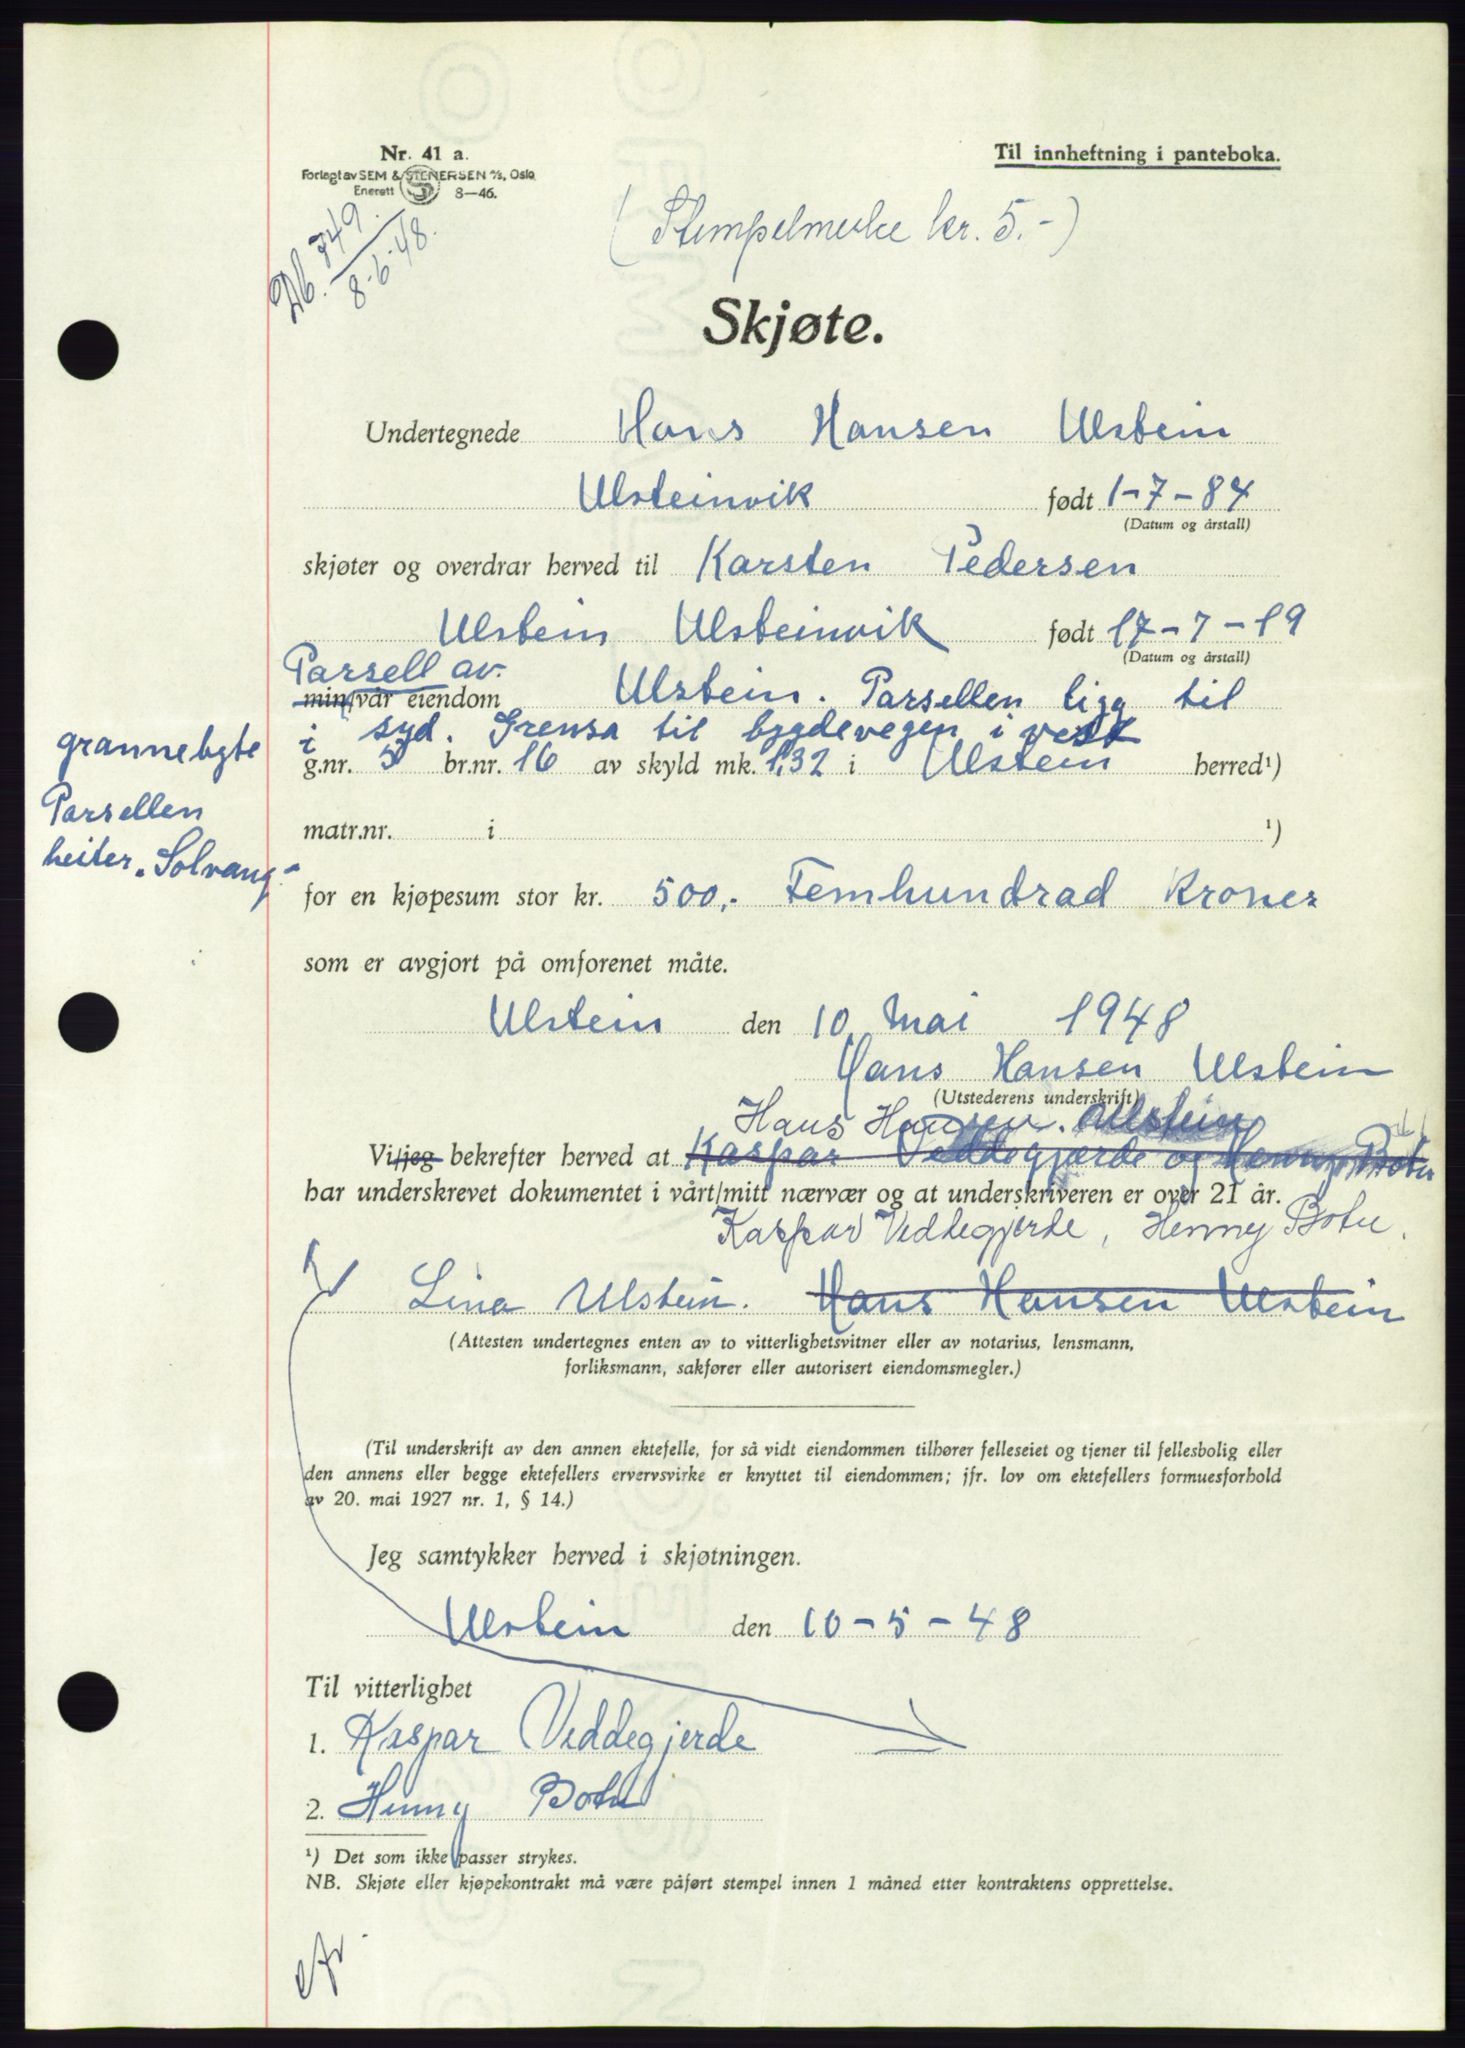 Nr. 41 a.
Forlagt av SEM & STENERSEN A/S, Oslo
Enerett 8—46.
Til innheftning i panteboka.
(Stempelmerke kr. 5.-)
Db. 749.
8-6-48.
Skjøte.
Undertegnede Hans Hansen Ulstein
Ulsteinvik født 1-7-84
(Datum og årstall)
skjøter og overdrar herved til Karsten Pedersen
Ulstein Ulsteinvik født 17-7-19
(Datum og årstall)
Parsell av.
min/vår eiendom Ulstein. Parsellen ligg til
i syd. Grensa til bygdevegen i vest
grannebyte
g.nr. 5 br.nr. 16 av skyld mk. 1,32 i Ulstein herred¹)
Parsellen
matr.nr. i ¹)
heiter "Solvang"
for en kjøpesum stor kr. 500,- Femhundrad Kroner
som er avgjort på omforenet måte.
Ulstein den 10 Mai 1948
Hans Hansen Ulstein
(Utstederens underskrift)
Hans Hansen Ulstein
Vi/jeg bekrefter herved at Kaspar Veddegjærde og Henny Botn
har underskrevet dokumentet i vårt/mitt nærvær og at underskriveren er over 21 år.
Kaspar Veddegjerde, Henny Botn.
Lina Ulstein. Hans Hansen Ulstein
(Attesten undertegnes enten av to vitterlighetsvitner eller av notarius, lensmann,
forliksmann, sakfører eller autorisert eiendomsmegler.)
(Til underskrift av den annen ektefelle, for så vidt eiendommen tilhører felleseiet og tjener til fellesbolig eller
den annens eller begge ektefellers ervervsvirke er knyttet til eiendommen; jfr. lov om ektefellers formuesforhold
av 20. mai 1927 nr. 1, § 14.)
Jeg samtykker herved i skjøtningen.
Ulstein den 10-5-48
Til vitterlighet
1. Kaspar Veddegjerde
2. Henny Botn
¹) Det som ikke passer strykes.
NB. Skjøte eller kjøpekontrakt må være påført stempel innen 1 måned etter kontraktens opprettelse.